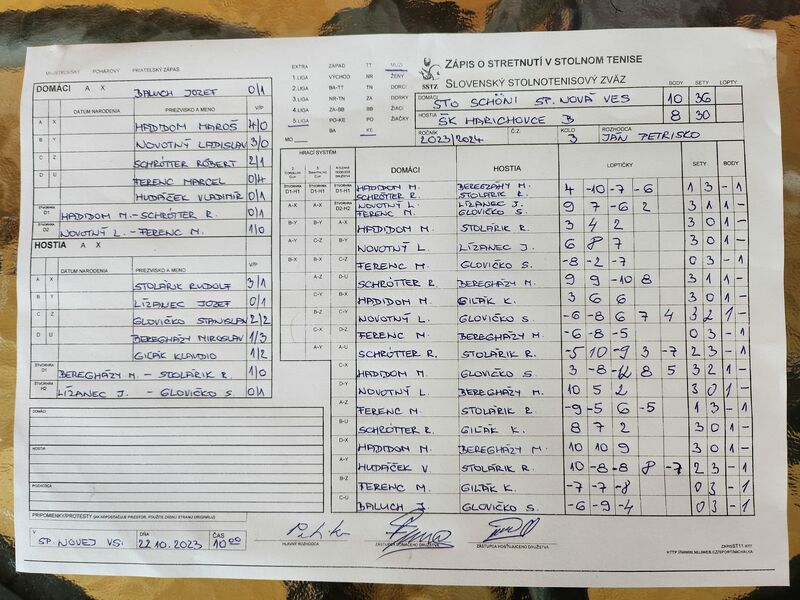 MAJSTROVSKÝ POHÁROVÝ PRIATEĽSKÝ ZÁPAS
EXTRA ZÁPAD TT MUŽI
1.LIGA VÝCHOD NR ŽENY
2.LIGA BA-TT TN DORCI
3.LIGA NR-TN ZA DORKY
4.LIGA ZA-BB BB ŽIACI
5.LIGA PO-KE PO ŽIAČKY
MO BA KE
SSTZ
ZÁPIS O STRETNUTÍ V STOLNOM TENISE
SLOVENSKÝ STOLNOTENISOVÝ ZVÄZ
BODY SETY LOPTY
DOMÁCI STO SCHÖNI SP. NOVÁ VES 10 36
HOSTIA ŠK HARICHOVCE B 8 30
ROČNÍK 2023/2024 Č.Z. KOLO 3 ROZHODCA JÁN PETRISKO
DOMÁCI A X BALUCH JOZEF 0/1
DÁTUM NARODENIA PRIEZVISKO A MENO V/P
A X HADIDOM MAROŠ 4/0
B Y NOVOTNÝ LADISLAV 3/0
C Z SCHRÖTTER RÓBERT 2/1
D U FERENC MARCEL 0/4
HUDÁČEK VLADIMÍR 0/1
ŠTVORHRA D1 HADIDOM M. - SCHRÖTTER R. 0/1
ŠTVORHRA D2 NOVOTNÝ L. - FERENC M. 1/0
HOSTIA A X
DÁTUM NARODENIA PRIEZVISKO A MENO V/P
A X STOLÁRIK RUDOLF 3/1
B Y LÍZANEC JOZEF 0/1
C Z GLOVIČKO STANISLAV 2/2
D U BEREGHÁZY MIROSLAV 1/3
GIĽÁK KLAUDIO 1/2
ŠTVORHRA D1 BEREGHÁZY M. - STOLÁRIK R. 1/0
ŠTVORHRA H2 LÍZANEC J. - GLOVIČKO S. 0/1
DOMÁCI
HOSTIA
ROZHODCA
PRIPOMIENKY/PROTESTY (AK NEPOSTAČUJE PRIESTOR, POUŽITE ZADNÚ STRANU ORIGINÁLU)
HRACÍ SYSTÉM
DOMÁCI HOSTIA LOPTIČKY SETY BODY
ŠTVORHRA D1-H1 ŠTVORHRA D1-H1 ŠTVORHRA D1-H1 HADIDOM M. SCHRÖTTER R. BEREGHÁZY M. STOLÁRIK R. 4 -10 -7 -6 1 3 - 1
A-X A-X ŠTVORHRA D2-H2 NOVOTNÝ L. FERENC M. LÍZANEC J. GLOVIČKO S. 9 7 -6 2 3 1 1 -
B-Y B-Y A-X HADIDOM M. STOLÁRIK R. 3 4 2 3 0 1 -
A-Y C-Z B-Y NOVOTNÝ L. LÍZANEC J. 6 8 7 3 0 1 -
B-X B-X C-Z FERENC M. GLOVIČKO S. -8 -2 -7 0 3 - 1
A-Z D-U SCHRÖTTER R. BEREGHÁZY M. 9 9 -10 8 3 1 1 -
C-Y B-X HADIDOM M. GIĽÁK K. 3 6 6 3 0 1 -
B-Z C-Y NOVOTNÝ L. GLOVIČKO S. -6 -8 6 7 4 3 2 1 -
C-X D-Z FERENC M. BEREGHÁZY M. -6 -8 -5 0 3 - 1
A-Y A-U SCHRÖTTER R. STOLÁRIK R. -5 10 -9 3 -7 2 3 - 1
C-X HADIDOM M. GLOVIČKO S. 3 -8 -12 8 5 3 2 1 -
D-Y NOVOTNÝ L. BEREGHÁZY M. 10 5 2 3 0 1 -
A-Z FERENC M. STOLÁRIK R. -9 -5 6 -5 1 3 - 1
B-U SCHRÖTTER R. GIĽÁK K. 8 7 2 3 0 1 -
D-X HADIDOM M. BEREGHÁZY M. 10 10 9 3 0 1 -
A-Y HUDÁČEK V. STOLÁRIK R. 10 -8 -8 8 -7 2 3 - 1
B-Z FERENC M. GIĽÁK K. -7 -7 -8 0 3 - 1
C-U BALUCH J. GLOVIČKO S. -6 -9 -4 0 3 - 1
V SP. NOVEJ VSI DŇA 22.10.2023 ČAS 10:00
HLAVNÝ ROZHODCA ZÁSTUPCA DOMÁCEHO DRUŽSTVA ZÁSTUPCA HOSŤUJÚCEHO DRUŽSTVA